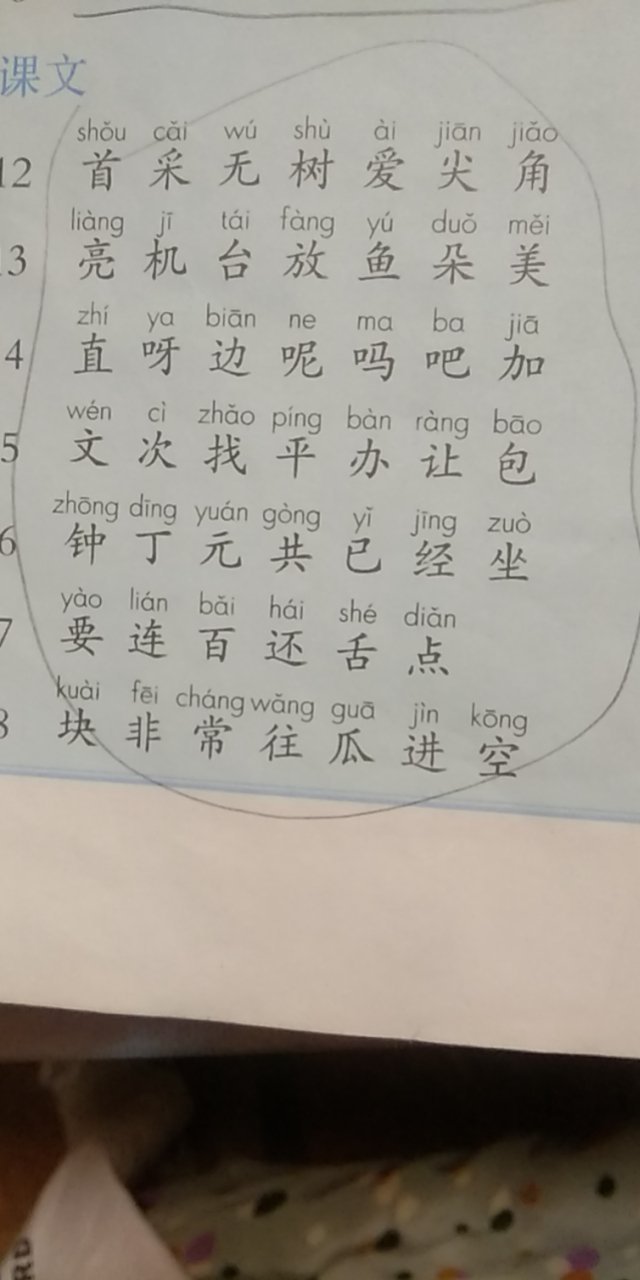 课文
shǒu cǎi wú shù ài jiān jiǎo
12 首 采 无 树 爱 尖 角
liàng jī tái fàng yú duǒ měi
3 亮 机 台 放 鱼 朵 美
zhí ya biān ne ma ba jiā
4 直 呀 边 呢 吗 吧 加
wén cì zhǎo píng bàn ràng bāo
5 文 次 找 平 办 让 包
zhōng dīng yuán gòng yǐ jīng zuò
6 钟 丁 元 共 已 经 坐
yào lián bǎi hái shé diǎn
7 要 连 百 还 舌 点
kuài fēi cháng wǎng guā jìn kōng
8 块 非 常 往 瓜 进 空